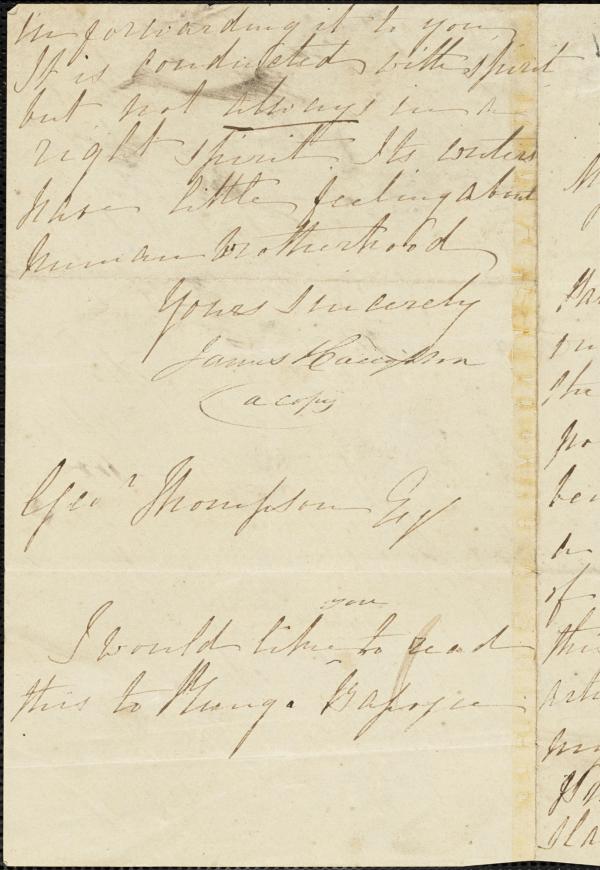 in forwarding it to you
It is conducted with spirit
but not always in a
right spirit Its writers
have little feeling about
human brotherhood
Yours Sincerely
James Haughton
(a copy
Geo^r Thompson Esq^r
you
I would like to read
this to Rungo Bapojee